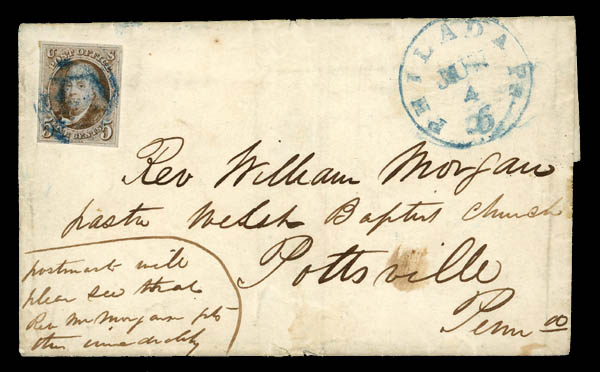 U S
POST OFFICE
FIVE CENTS
5 5
PHILADA Pa
JUN
4
Rev William Morgan
pastor Welsh Baptist Church
Pottsville
Penn
postmaster will
please see that
Rev Mr Morgan gets
this immediately